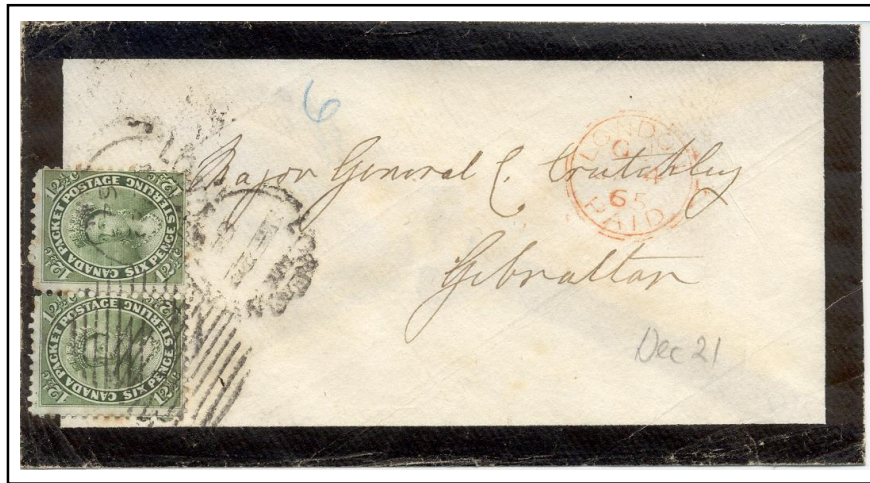 6
Major General C. Crutchley
Gibraltar
Dec 21
LONDON
65
PAID
CANADA PACKET POSTAGE
SIX PENCE STERLING
12½c
CANADA PACKET POSTAGE
SIX PENCE STERLING
12½c